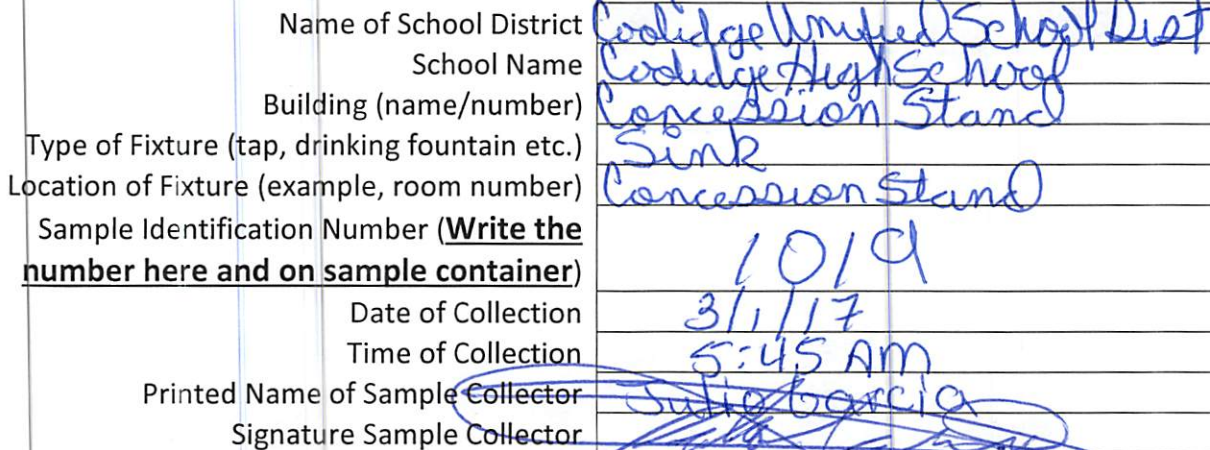 Name of School District Coolidge Unified School Dist
School Name Coolidge High School
Building (name/number) Concession Stand
Type of Fixture (tap, drinking fountain etc.) Sink
Location of Fixture (example, room number) Concession Stand
Sample Identification Number (Write the
number here and on sample container) 1019
Date of Collection 3/1/17
Time of Collection 5:45 AM
Printed Name of Sample Collector Julio Garcia
Signature Sample Collector